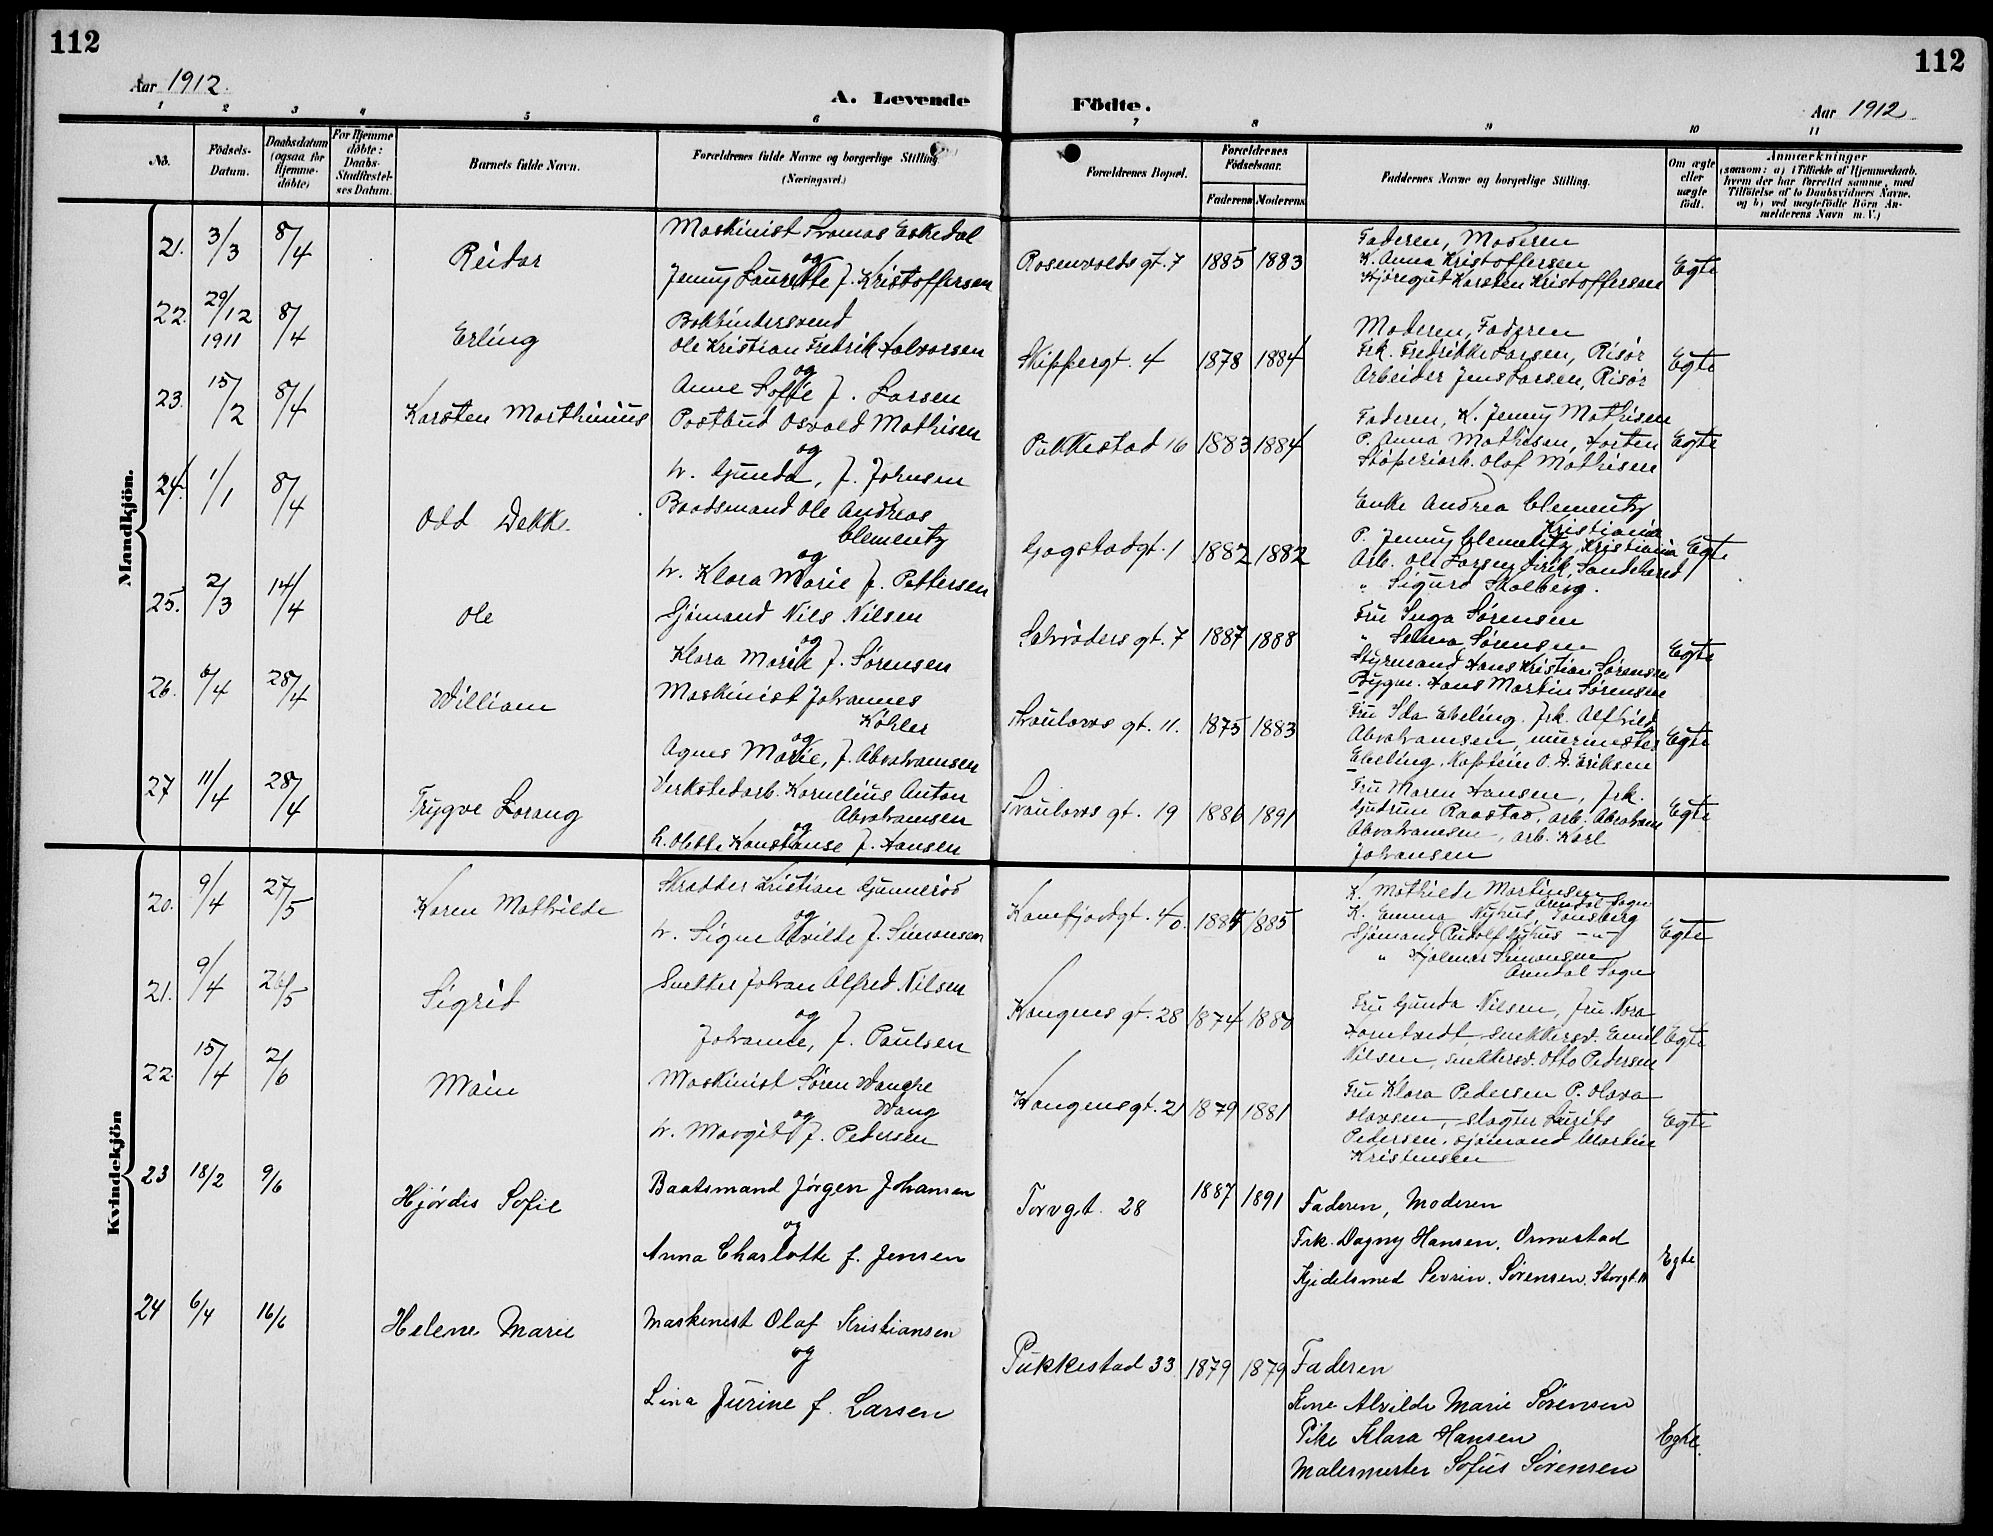 112
112
Aar 1912.
A. Levende
Födte.
Aar 1912
1 2 3 4 5 6 7 8 9 10 11
No.
Födsels-
Datum.
Daabsdatum
(ogsaa for
Hjemme-
döbte)
For Hjemme
döbte:
Daabs-
Stadfæstel-
ses Datum.
Barnets fulde Navn.
Forældrenes fulde Navne og borgerlige Stilling
(Næringsvei.)
Forældrenes Bopæl.
Forældrenes
Födselsaar.
Faderens Moderens
Faddernes Navne og borgerlige Stilling.
Om ægte
eller
uægte
födt.
Anmærkninger
(saasom: a) i Tilfælde af Hjemmedaab,
hvem der har forrettet samme, med
Tilföielse af to Daabsvidners Navne,
og b) ved uegtefödte Börn An-
melderens Navn m. V.)
Mandkjön.
21. 3/3 8/4 Reidar
Maskinist Tomas Eskedal
og
Jenny Laurette f. Kristoffersen
Rosenvolds gt. 7 1885 1883
Faderen, Moderen
K. Anna Kristoffersen
Kjøregut Karsten Kristoffersen
Egte
22. 29/12 1911 8/4 Erling
Bokbindersvend
Ole Kristian Fredrik Halvorsen
og
Anne Sofie f. Larsen
Skippergt. 4 1878 1884
Moderen, Faderen
Frk. Fredrikke Larsen, Risør
Arbeider Jens Larsen, Risør
Egte
23. 15/2 8/4 Karsten Marthinius
Postbud Osvald Mathisen
og
h. Gunda, f. Johnsen
Pukkestad 16 1883 1884
Faderen, K. Jenny Mathisen
P. Anna Mathisen, Horten
Støperiarb. Olaf Mathisen
Egte
24. 1/1 8/4 Odd Dekke
Baadsmand Ole Andreas
Clementz
og
h. Klara Marie f. Pettersen
Gogstadgt. 1 1882 1882
Enke Andrea Clementz
Kristiania
P. Jenny Clementz, Kristiania
Arb. Ole Larsen Firik, Sandeherred
" Sigurd Skolberg.
Egte
25. 2/3 14/4 Ole
Sjømand Nils Nilsen
og
Klara Marie f. Sørensen
Schrøders gt. 7 1887 1888
Fru Inga Sørensen
" Selma Sørensen
Styrmand Hans Kristian Sørensen
Bygm. Hans Martin Sørensen
Egte
26. 6/4 28/4 William
Maskinist Johannes
Köhler
og
Agnes Marie, f. Abrahamsen
Thaulows gt. 11. 1875 1883
Fru Ida Ebeling, Frk. Alfhild
Abrahamsen, murmester
Ebeling, Kaptein O. A. Eriksen
Egte
27 11/4 28/4 Trygve Lorang
Verkstedarb. Kornelius Anton
Abrahamsen
og
h. Hilda Konstanse f. Hansen
Thaulows gt. 19 1886 1891
Fru Maren Hansen, Frk.
Gudrun Raastad, arb. Abraham
Abrahamsen, arb. Karl
Johansen
Egte
Kvindekjön
20. 9/4 27/5 Karen Mathilde
Skrædder Kristian Gunnerød
og
h. Signe Alvilde f. Simonsen
Kamfjordgt. 40. 1884 1885
K. Mathilde Martinsen
Arendal Sogn
K. Emma Nyhus, Tønsberg
Sjømand Rudolf Nyhus - " -
" Hjalmar Simonsen
Arendal Sogn
Egte
21. 9/4 26/5 Sigrid
Snekker Johan Alfred Nilsen
og
Johanne, f. Paulsen
Kongens gt. 28 1874 1880
Fru Gunda Nilsen, Fru Nora
Homtvedt, snekkersv. Emil
Nilsen, snekkersv. Otto Pedersen
Egte
22. 15/4 2/6 Main
Maskinist Søren Wanghe
Wang
og
h. Margit f. Pedersen
Kongensgt. 21 1879 1881
Fru Klara Pedersen P. Olava
Olavsen, slagter Laurits
Pedersen, sjømand Martin
Kristensen
Egte
23 18/2 9/6 Hjördis Sofie
Baatsmand Jørgen Johansen
og
Anna Charlotte f. Jensen
Torvgt. 28 1887 1891
Faderen, Moderen
Frk. Dagny Hansen, Ormestad
Kjedelsmed Sevrin. Sørensen. Storgt. 11
Egte
24 6/4 16/6 Helene Marie
Maskinist Olaf Kristiansen
og
Lina Jurine f. Larsen
Pukkestad 33 1879 1879
Faderen
Kone Alvilde Marie Sørensen
Pike Klara Hansen
Malermester Sofus Sørensen
Egte.